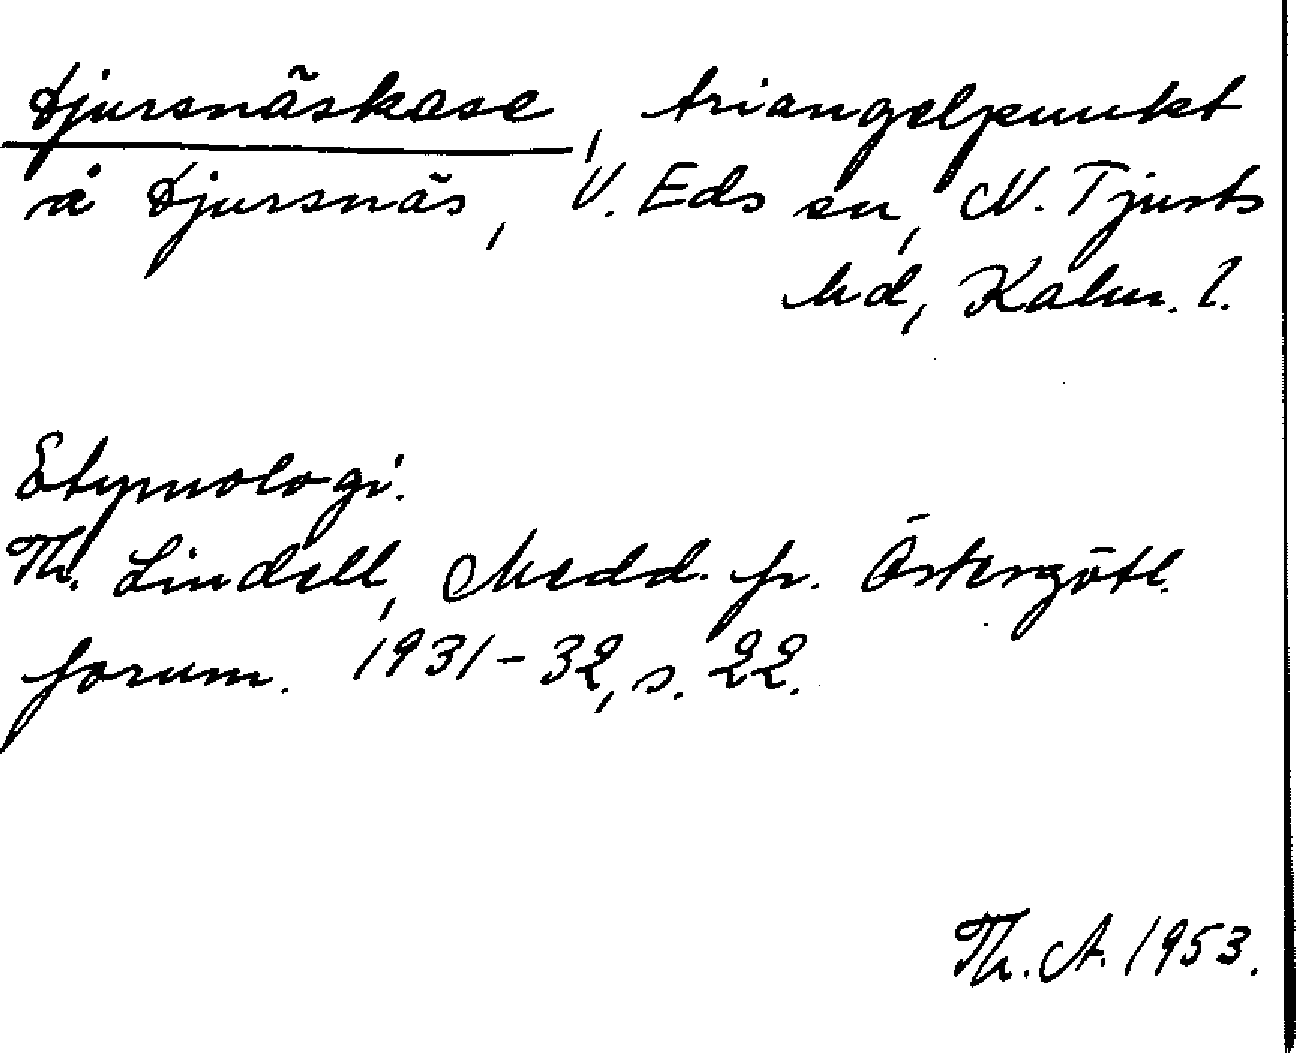 Djursnäskase, triangelpunkt
å Djursnäs, V. Eds sn, N. Tjusts
hd, Kalm. l.
Etymologi.
Th. Lindell, Medd. fr. Östergötl.
fornm. 1931-32, s. 22.
Th. A. 1953.